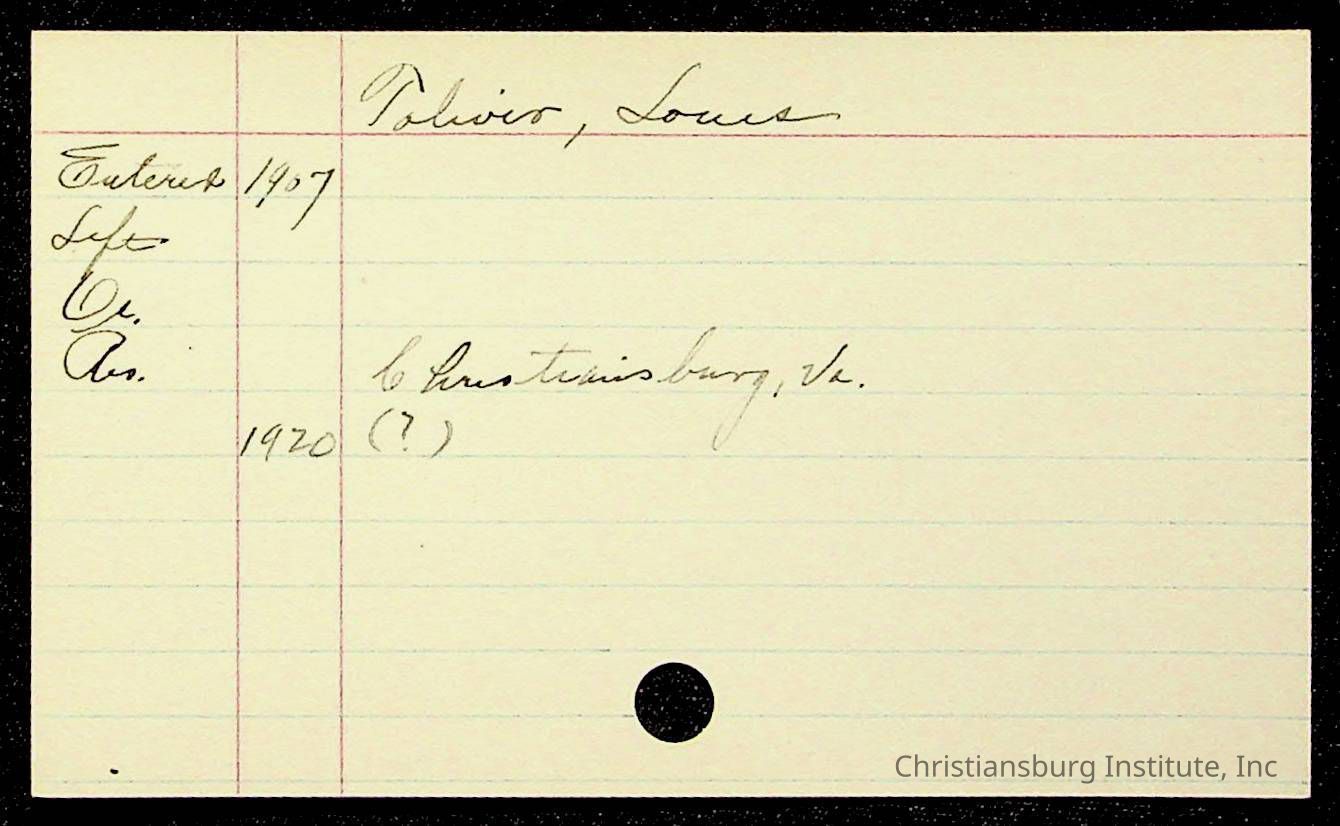 Toliver, Louis
Entered 1907
Left
Oc.
Res. Christiansburg, Va.
1920 (?)
Christiansburg Institute, Inc